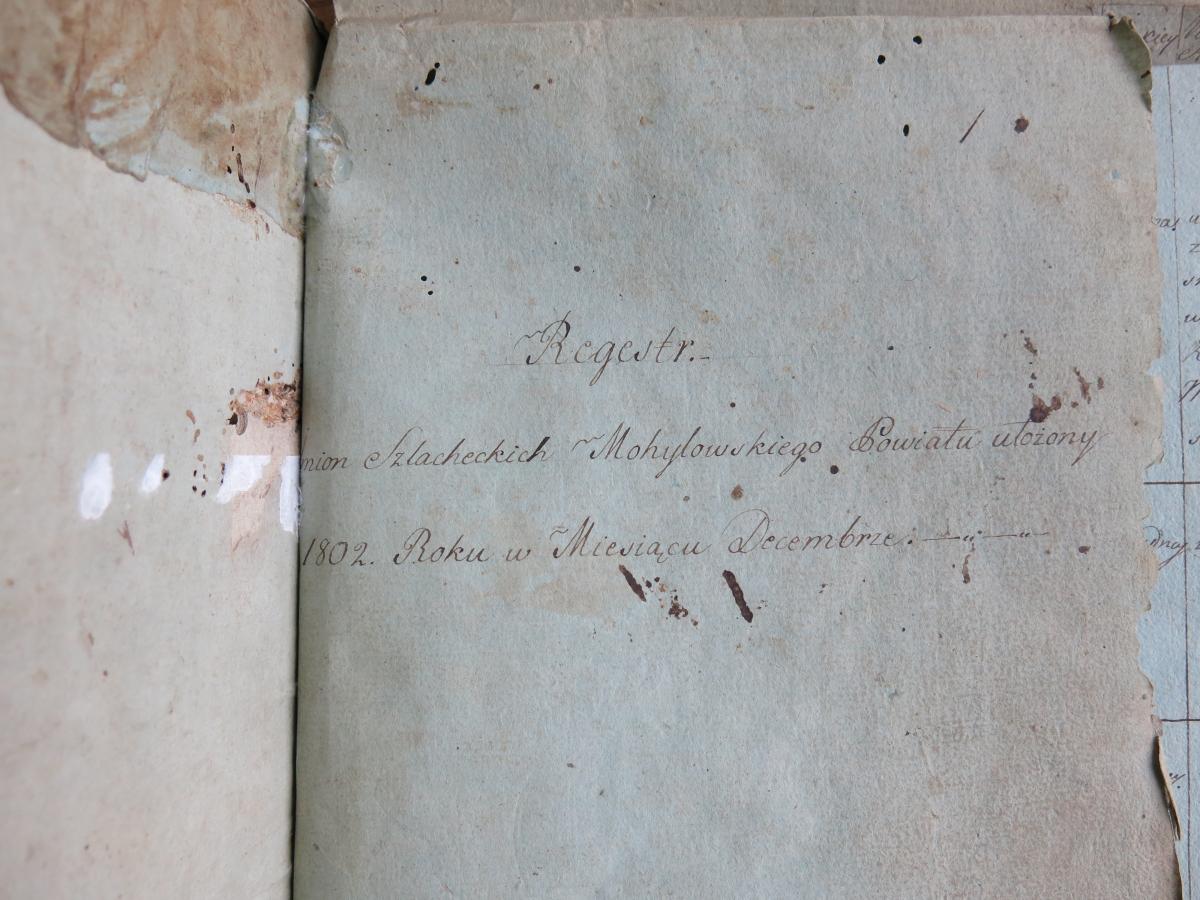 Regestr.
mion Szlacheckich Mohylowskiego Powiatu ułożony
1802. Roku w Miesiącu Decembrze.